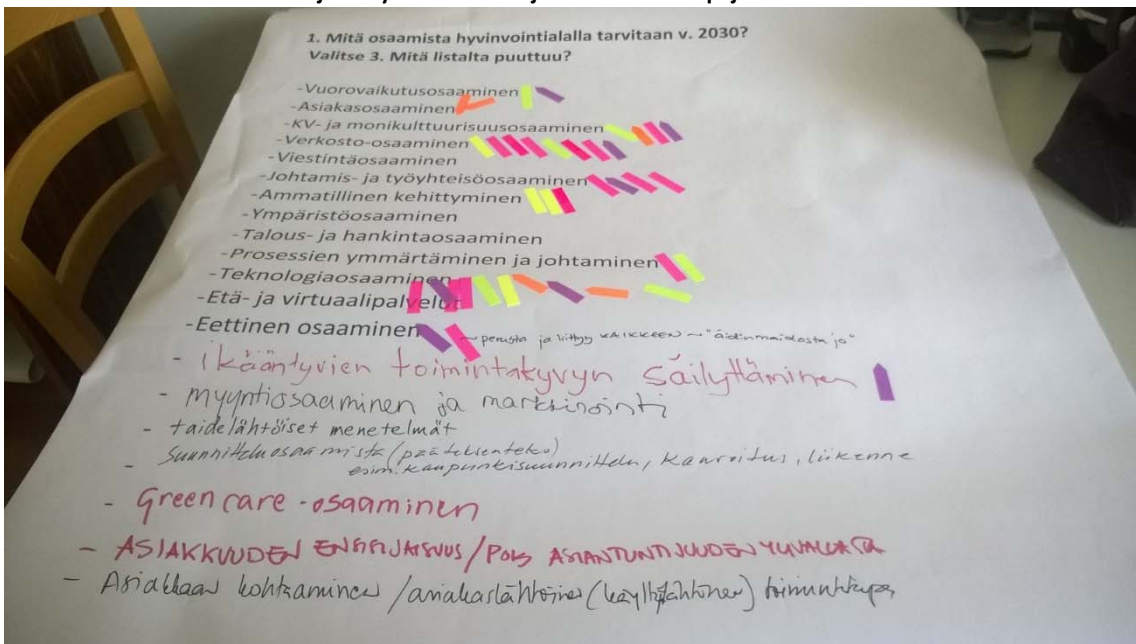 1. Mitä osaamista hyvinvointialalla tarvitaan v. 2030?
Valitse 3. Mitä listalta puuttuu?
-Vuorovaikutusosaaminen
-Asiakasosaaminen
-KV- ja monikulttuurisuusosaaminen
-Verkosto-osaaminen
-Viestintäosaaminen
-Johtamis- ja työyhteisöosaaminen
-Ammatillinen kehittyminen
-Ympäristöosaaminen
-Talous- ja hankintaosaaminen
-Prosessien ymmärtäminen ja johtaminen
-Teknologiaosaaminen
-Etä- ja virtuaalipalvelut
-Eettinen osaaminen ~ perusta ja liittyy KAIKKEEN ~ "äidinmaidosta jo"
- ikääntyvien toimintakyvyn säilyttäminen
- myyntiosaaminen ja markkinointi
- taidelähtöiset menetelmät
- Suunnitteluosaamista (päätöksenteko)
esim. kaupunkisuunnittelu, kaavoitus, liikenne
- Green care -osaaminen
- ASIAKKUUDEN ENSISIJAISUUS / POIS ASIANTUNTIJUUDEN
- Asiakkaan kohtaaminen / asiakaslähtöinen (käyttäjälähtöinen) toimintatapa